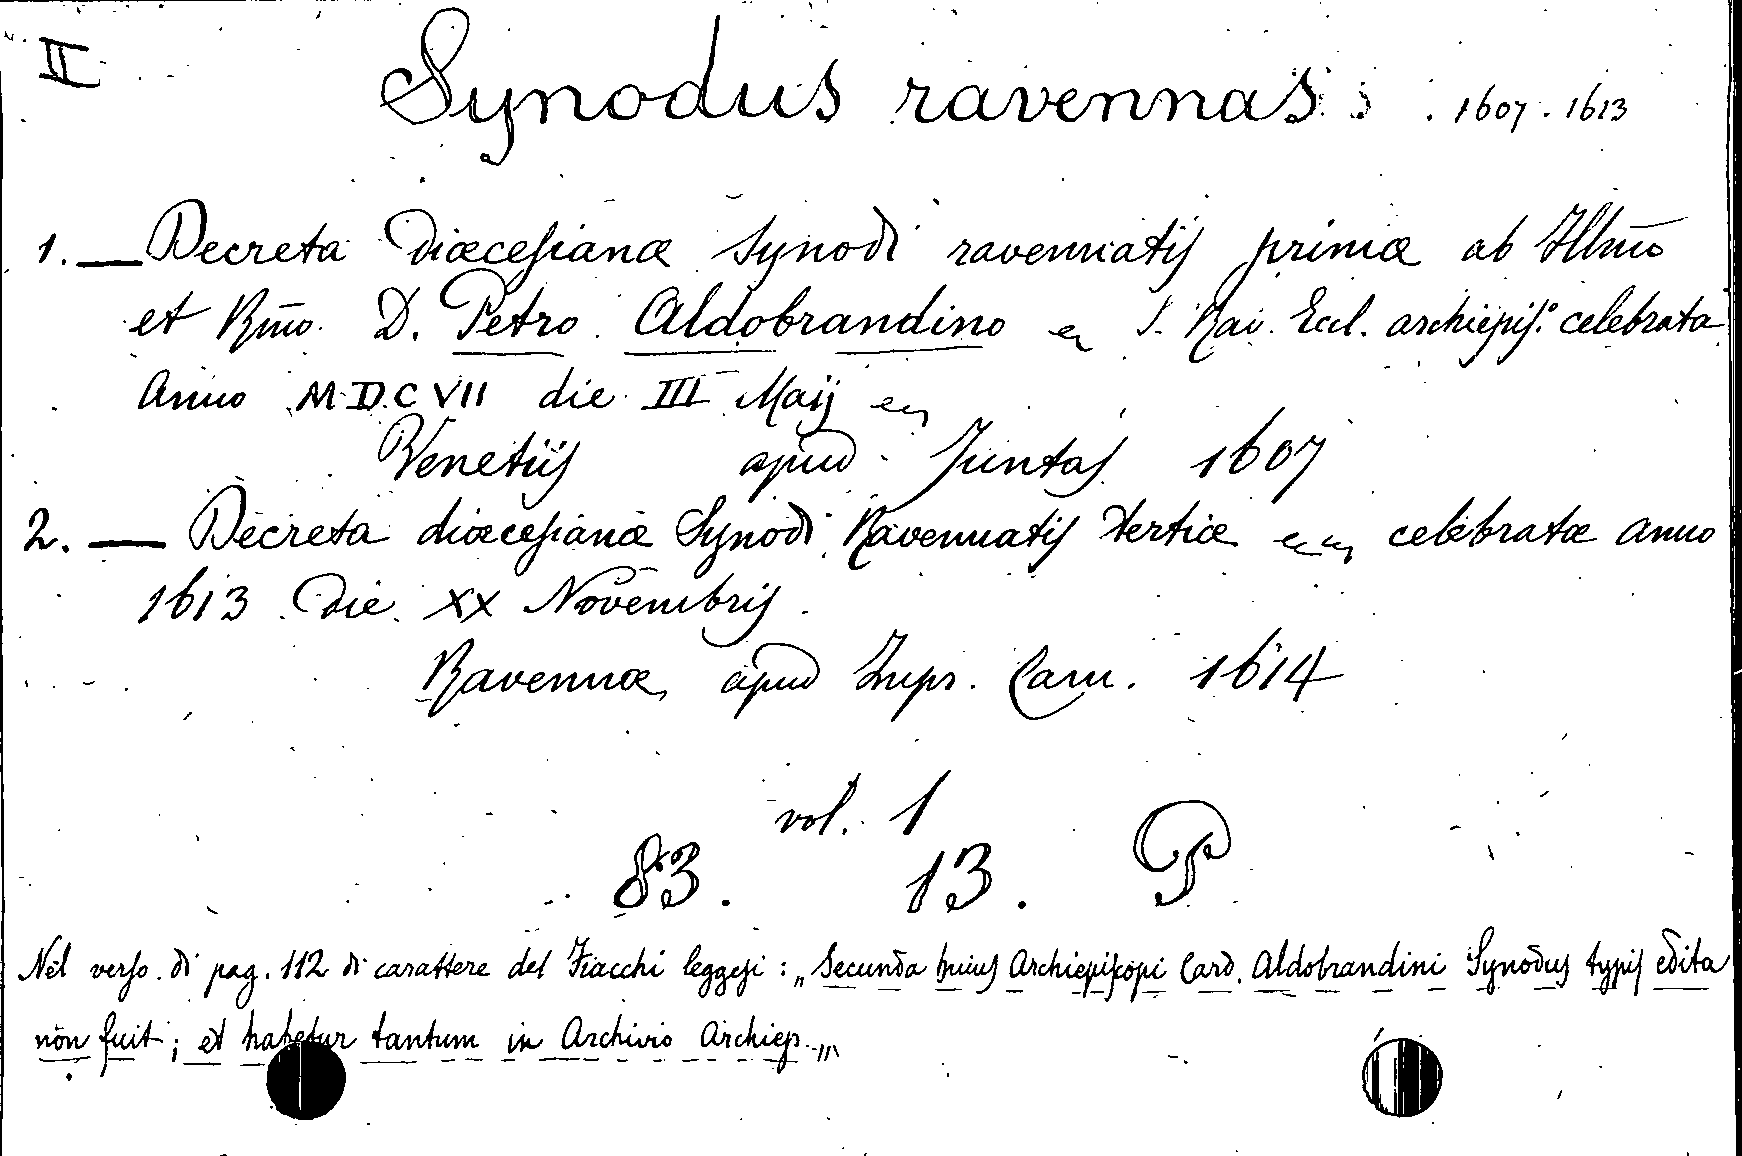 II
Synodus ravennas . 1607 . 1613
1. — Decreta diœcesianæ synodi ravennatis primæ ab Illm̃o
et Rm̃o D. Petro Aldobrandino S. Rav. Eccl. archiepis.º celebrata
Anno MDCVII die III Maij
Venetiis apud Juntas 1607
2. — Decreta diœcesianæ Synodi Ravennatis tertiæ celebratæ anno
1613 die XX Novembris.
Ravennæ, apud Impr. Cam. 1614
vol. 1
83. 13. P
Nel verso di pag. 112 di carattere del Fiacchi leggesi: „Secunda huius Archiepiscopi Card. Aldobrandini Synodus typis edita
non fuit; et habetur tantum in Archivio Archiep.„